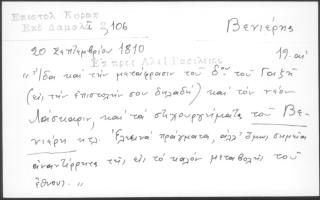 Επιστολ Κοραη
Εκδ Δαμαλᾶ 2,106
Βενιέρης
20 Σεπτεμβρίου 1810
19. αι
Ἐς πρὸς Ἀλεξ Βασιλείου
"Ἴδα καὶ τὴν μετάφρασιν τοῦ δου τοῦ
(εἰς τὴν ἐπιστολήν σου δηλαδή) καὶ τὸν νέον
Λάσκαριν, καὶ τὰ στιχουργήματα τοῦ Βε-
νιέρη κτλ. Ἐλεεινὰ πράγματα, ἀλλ' ὅμως σημεῖα
ἀναντίρρητα τῆς εἰς τὸ καλὸν μεταβολῆς τοῦ
ἔθνους."